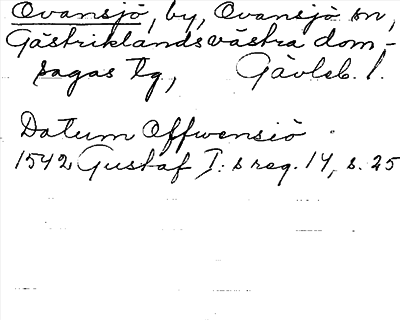 Ovansjö, by, Ovansjö sn,
Gästriklands västra dom-
sagas tg, Gävleb. l.
Datum Offwensiö
1542 Gustaf I:s reg. 14, s. 25